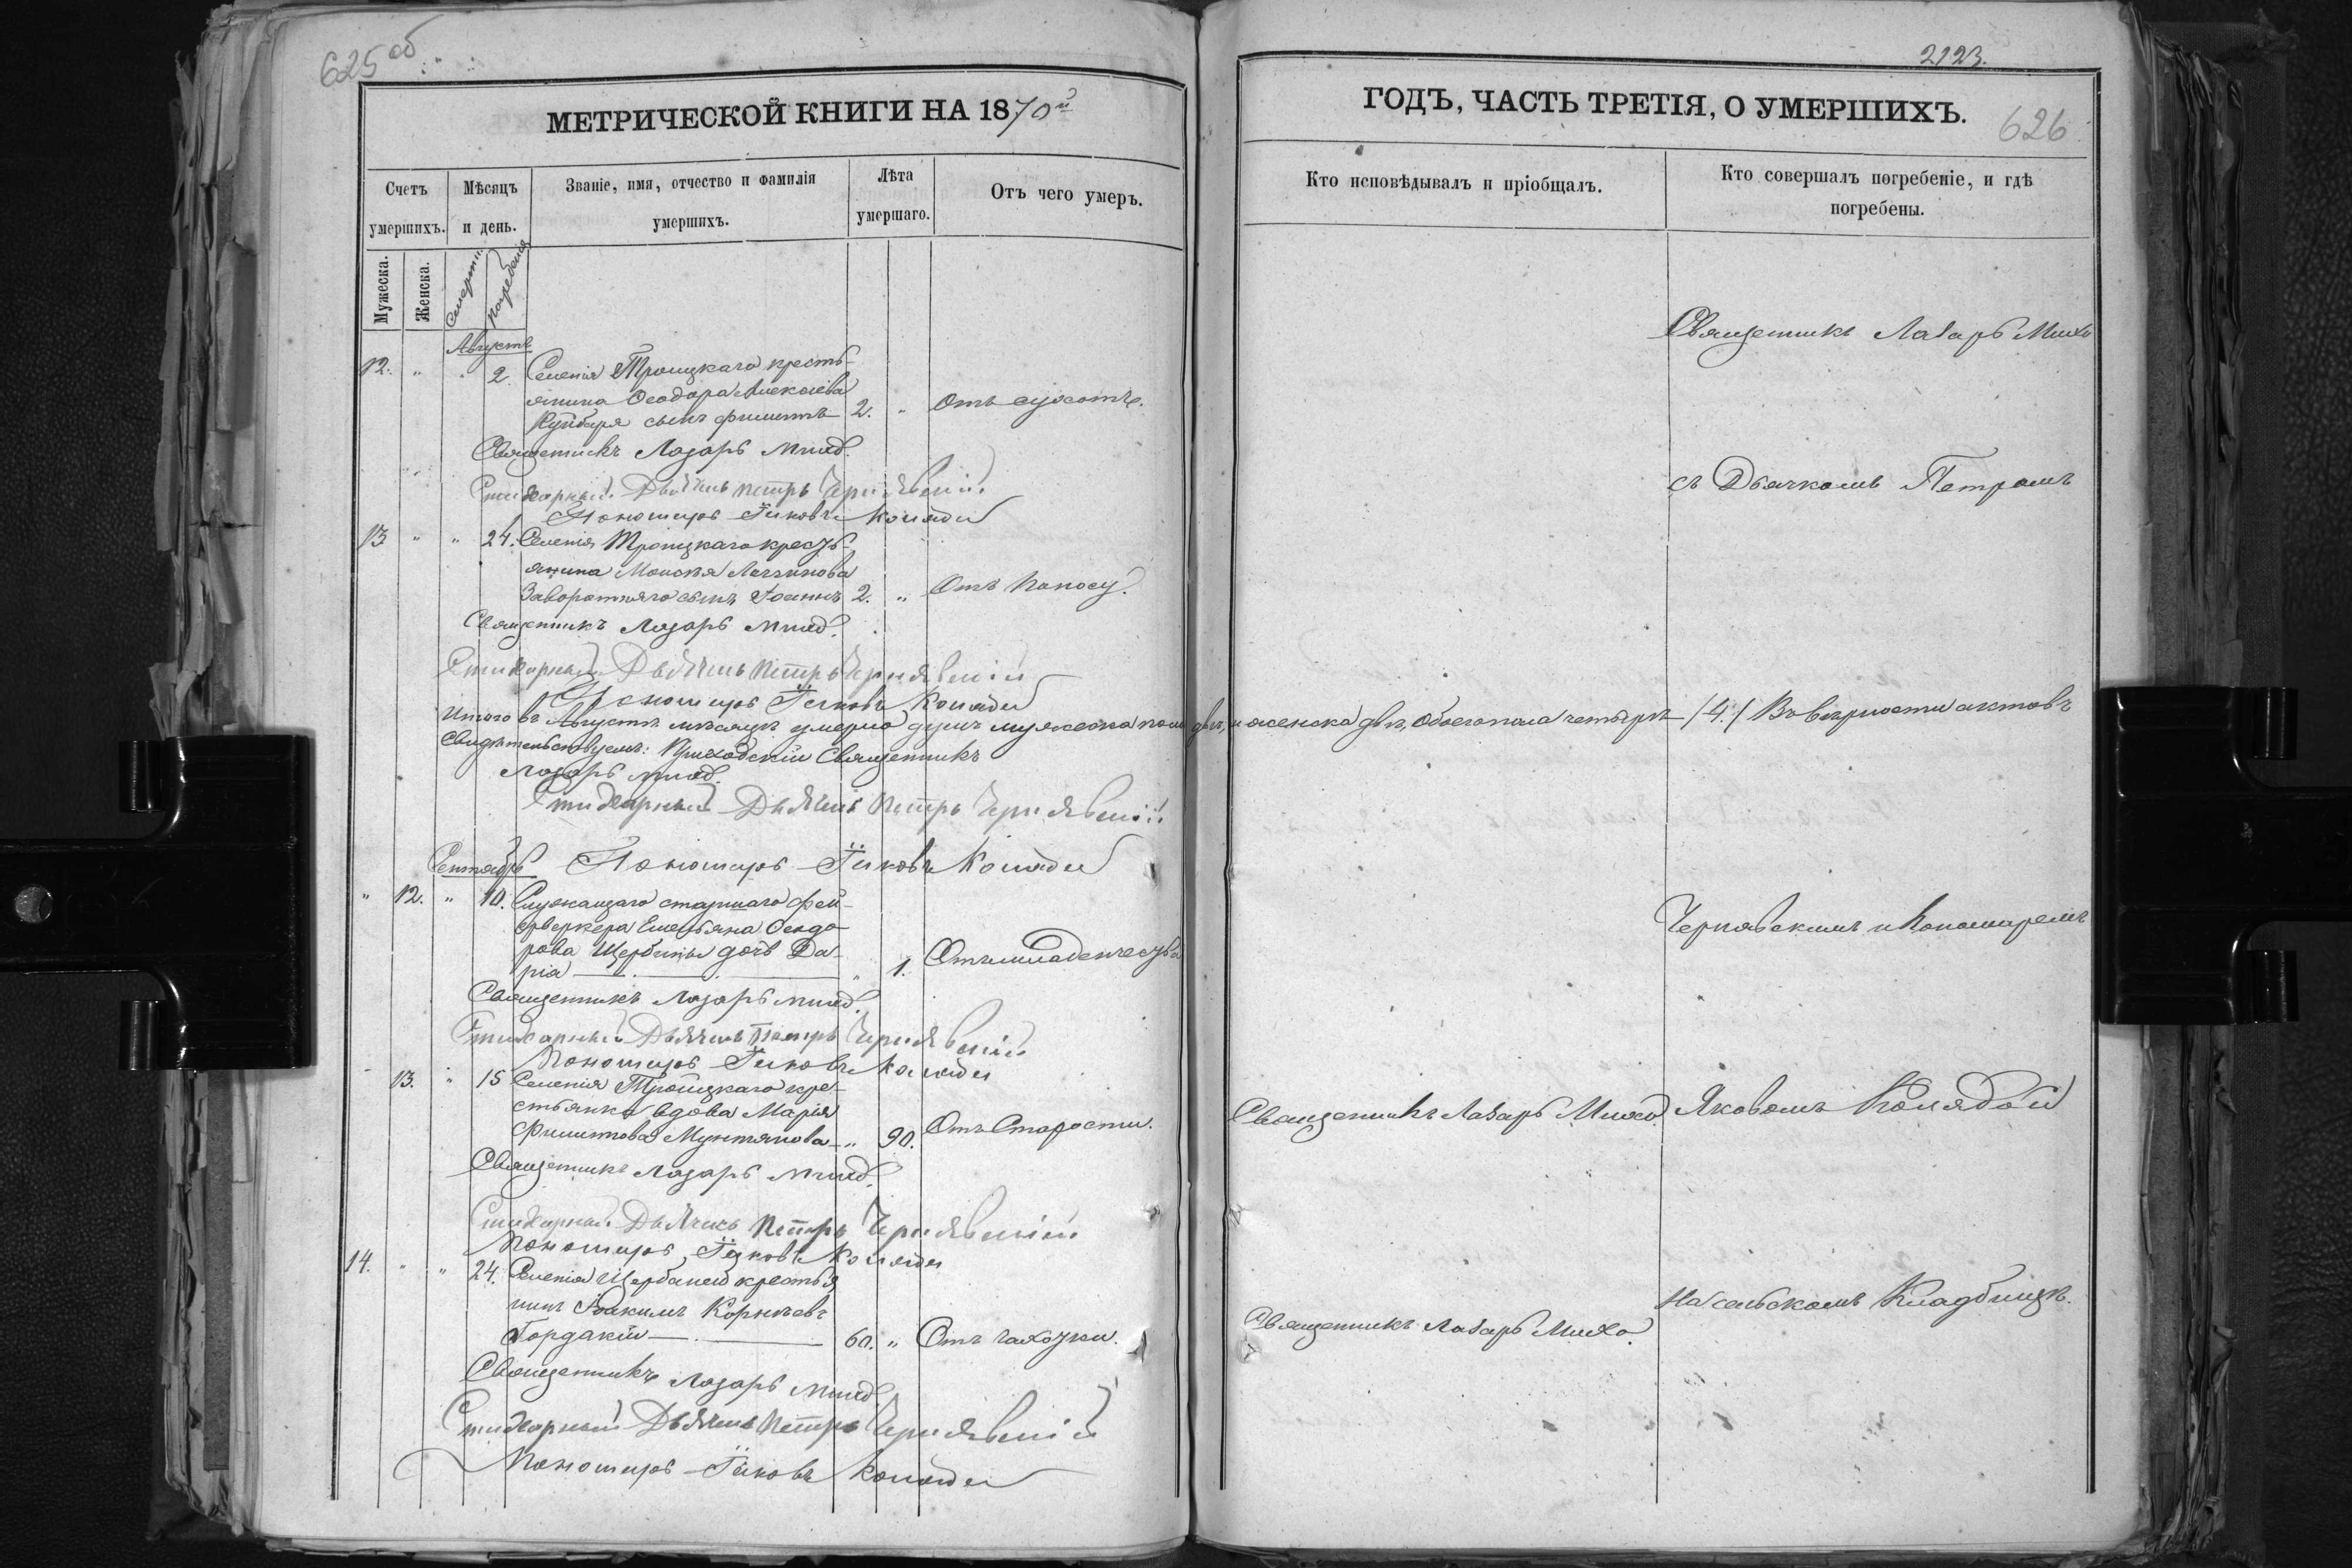 625 об
МЕТРИЧЕСКОЙ КНИГИ НА 1870й
Счетъ умершихъ.
Мѣсяцъ и день.
Званіе, имя, отчество и фамилія умершихъ.
Лѣта умершаго.
Отъ чего умеръ.
Мужеска.
Женска.
Смерти.
Погребенія
Августъ
12. " " 2. Селенія Троицкаго кресть-
янина Ѳеодора Алексіева
сынъ Филиппъ 2. " Отъ сухотъ.
Священникъ Лазарь Михо.
Стихарный Дьячекъ Петръ Чернявскій
Пономарь Іяковъ Коляда
13 " " 24. Селенія Троицкаго кресть-
янина Моисея Логгинова
Заворотняго сынъ Іоаннъ 2. " Отъ Поносу.
Священникъ Лазарь Михо.
Стихарный Дьячекъ Петръ Чернявскій
Пономарь Іяковъ Коляда
Итого въ Августѣ мѣсяцѣ умерло душъ мужеска пола двѣ, и женска двѣ, обоего пола четыре /4./ Въ вѣрности актовъ
свидѣтельствуемъ: Приходскій Священникъ
Лазарь Михо.
Стихарный Дьячекъ Петръ Чернявскій
Пономарь Іяковъ Коляда
Сентябрь
" 12. " 10. Служащаго старшаго фей-
ерверкера Емельяна Ѳеодо-
рова Щербины дочь Да-
рія " 1. Отъ младенчества
Священникъ Лазарь Михо.
Стихарный Дьячекъ Петръ Чернявскій
Пономарь Іяковъ Коляда
" 13. " 15 Селенія Троицкаго кре-
стьянка вдова Марія
Филиппова Мунтянова " 90. Отъ Старости.
Священникъ Лазарь Михо.
Стихарный Дьячекъ Петръ Чернявскій
Пономарь Іяковъ Коляда
14. " " 24. Селенія Щербанею крестья
нинъ Іоакимъ Корнѣевъ
Гордакій 60. " Отъ чахотки.
Священникъ Лазарь Михо.
Стихарный Дьячекъ Петръ Чернявскій
Пономарь Іяковъ Коляда
2123.
ГОДЪ, ЧАСТЬ ТРЕТІЯ, О УМЕРШИХЪ.
626
Кто исповѣдывалъ и пріобщалъ.
Кто совершалъ погребеніе, и гдѣ погребены.
Священникъ Лазарь Михо
съ Дьячкомъ Петромъ
Чернявскимъ и Пономаремъ
Священникъ Лазарь Михо.
Яковомъ Колядой
На сельскомъ Кладбищѣ.
Священникъ Лазарь Михо.